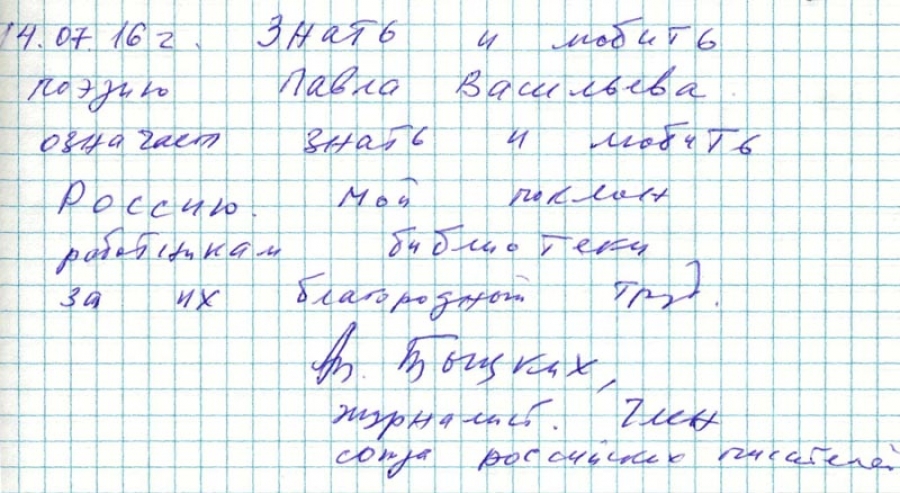 14.07.16 г. Знать и любить
поэзию Павла Васильева
означает знать и любить
Россию. Мой поклон
работникам библиотеки
за их благородный труд.
Вл. Тыцких,
журналист. Член
союза российских писателей